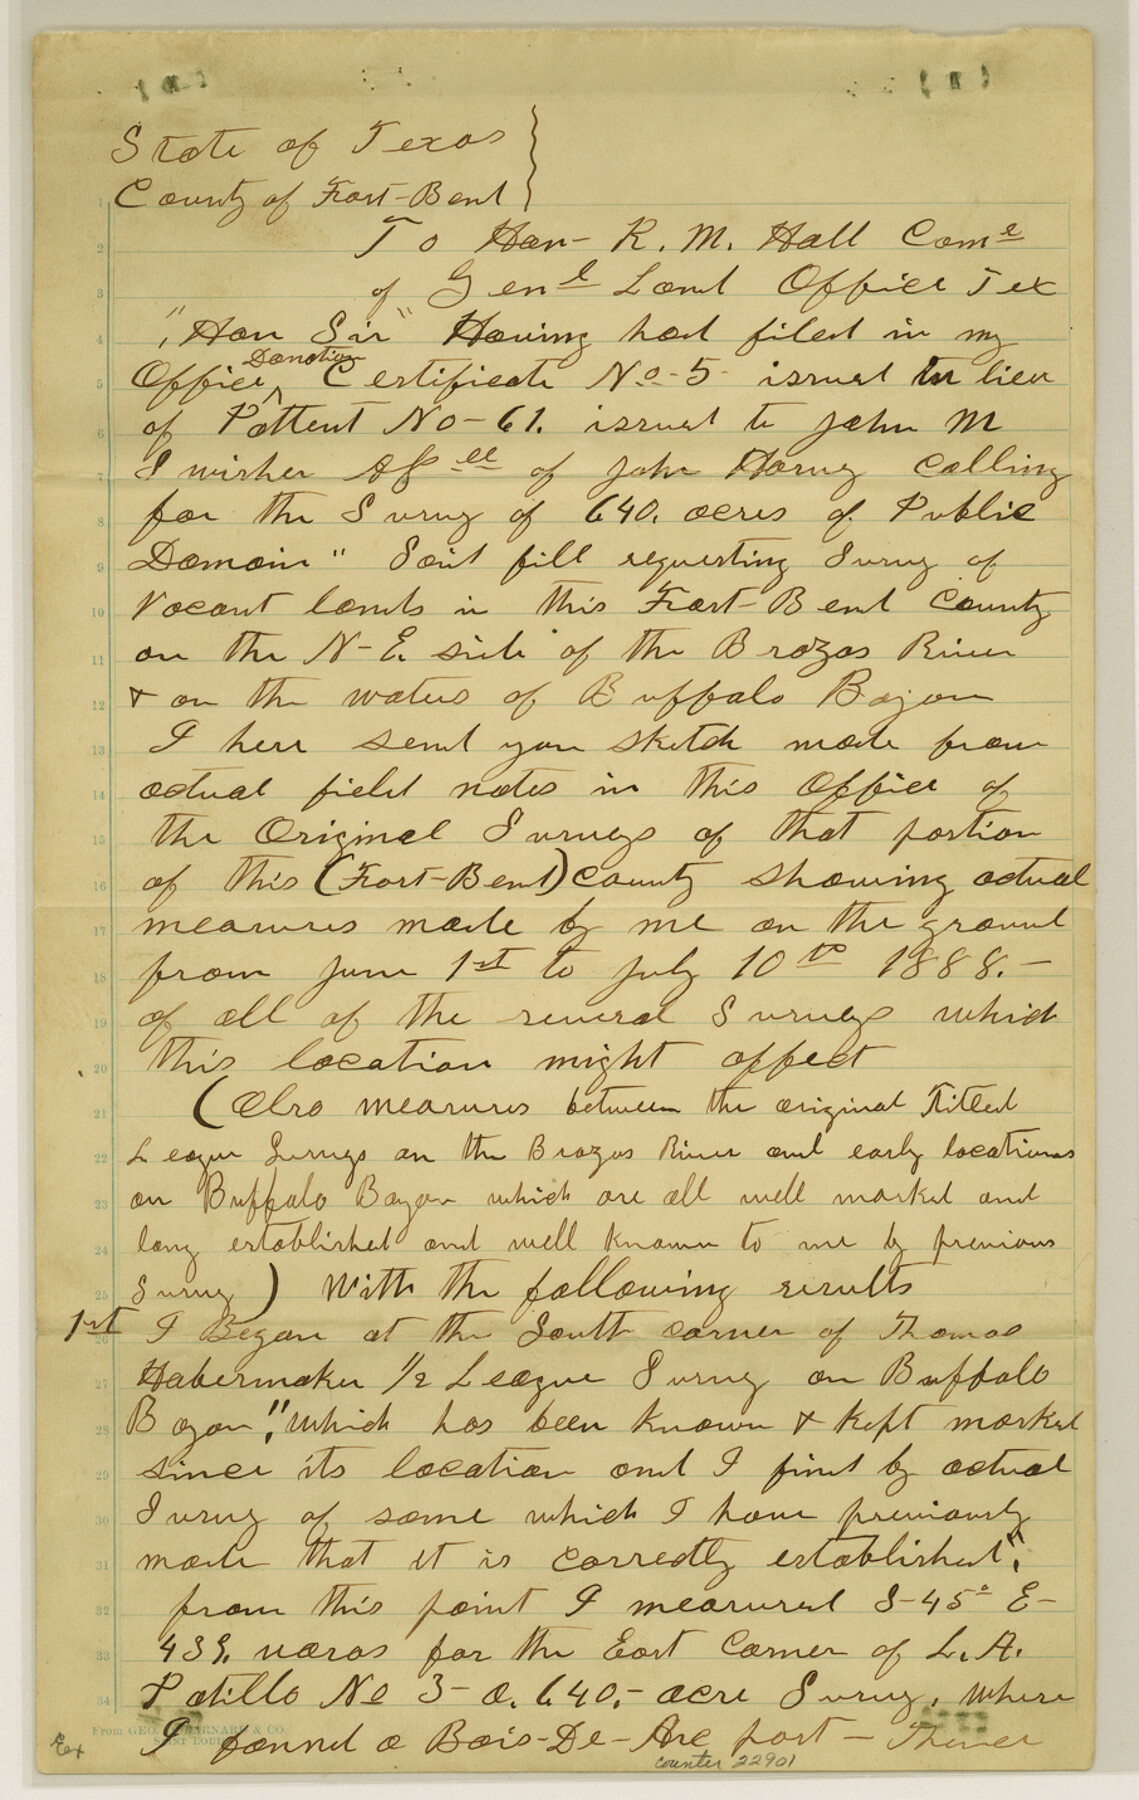 State of Texas
County of Fort-Bend
To Hon- R. M. Hall Come
of Genl Land Office Tex
"Hon Sir" Having had filed in my
Office Donation Certificate No-5- issued in lieu
of Pattent No-61. issued to John M
Swisher of John Harvey Calling
for the Survey of 640. acres of Public
Domain" Said fill requesting Survey of
Vacant lands in this Fort-Bend County
on the N-E. side of the Brazos River
& on the waters of Buffalo Bayou
I here send you sketch made from
actual field notes in this Office of
the Original Surveys of that portion
of this (Fort-Bend) County showing actual
measures made by me on the ground
from June 1st to July 10th 1888.-
of all of the several Surveys which
this location might affect
(Also measures between the original Titled
League Surveys on the Brazos River and early locations
on Buffalo Bayou which are all well marked and
long established and well known to me by previous
Survey) With the following results
1st I Began at the South corner of Thomas
Habermaker 1/2 League Survey on Buffalo
Bayou, "which has been known & kept marked
since its location and I find by actual
Survey of same which I have previously
made that it is correctly established".
from this point I measured S-45° E-
439. varas for the East Corner of L. A.
Patillo No 3- a. 640.- acre Survey, where
I found a Bois-De-Arc post - Thence
From GEO. BARNARD & CO.
SAINT LOUIS
counter 22901